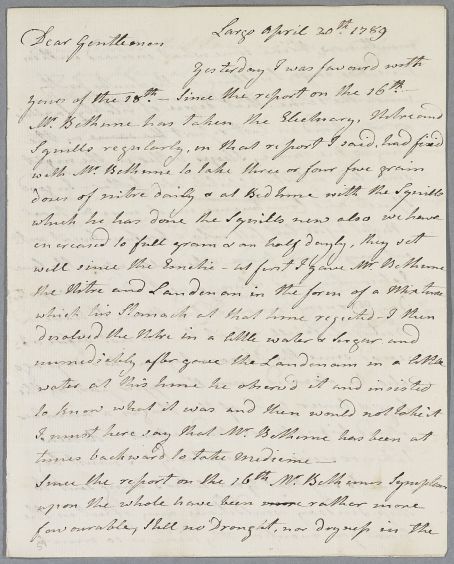 Largo April 20th. 1789
Dear Gentlemen
Yesterday I was favoured with
yours of the 18th. — Since the report on the 16th. —
Mr. Bethune has taken the Electuary, Nitre and
Squills regularly, in that report I said, had fixed
with Mr. Bethune to take three or four five grain
doses of nitre daily & at Bed time with the Squills
which he has done the Squills now also we have
increased to full grain & an half dayly, they set
well since the Emetic - at first I gave Mr. Bethune
the Nitre and Laudanum in the form of a Mixture
which his Stomach at that time rejected - I then
disolved the Nitre in a little water & Sugar and
immediately after gave the Laudanum in a little
water at this time he observed it and insisted
to know what it was and then would not take it
I must here say that Mr. Bethune has been at
times backward to take Medicine —
Since the report on the 16th Mr. Bethunes Symptoms
upon the whole have been rather more
favourable, Still no Drought, nor dryness in the